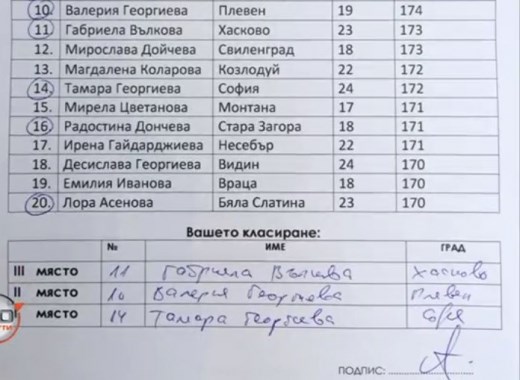 10. Валерия Георгиева Плевен 19 174
11. Габриела Вълкова Хасково 23 173
12. Мирослава Дойчева Свиленград 18 173
13. Магдалена Коларова Козлодуй 22 172
14. Тамара Георгиева София 24 172
15. Мирела Цветанова Монтана 17 171
16. Радостина Дончева Стара Загора 18 171
17. Ирена Гайдарджиева Несебър 22 171
18. Десислава Георгиева Видин 24 170
19. Емилия Иванова Враца 18 170
20. Лора Асенова Бяла Слатина 23 170
Вашето класиране:
№ ИМЕ ГРАД
III МЯСТО 11 Габриела Вълкова Хасково
II МЯСТО 10 Валерия Георгиева Плевен
МЯСТО 14 Тамара Георгиева София
ПОДПИС: